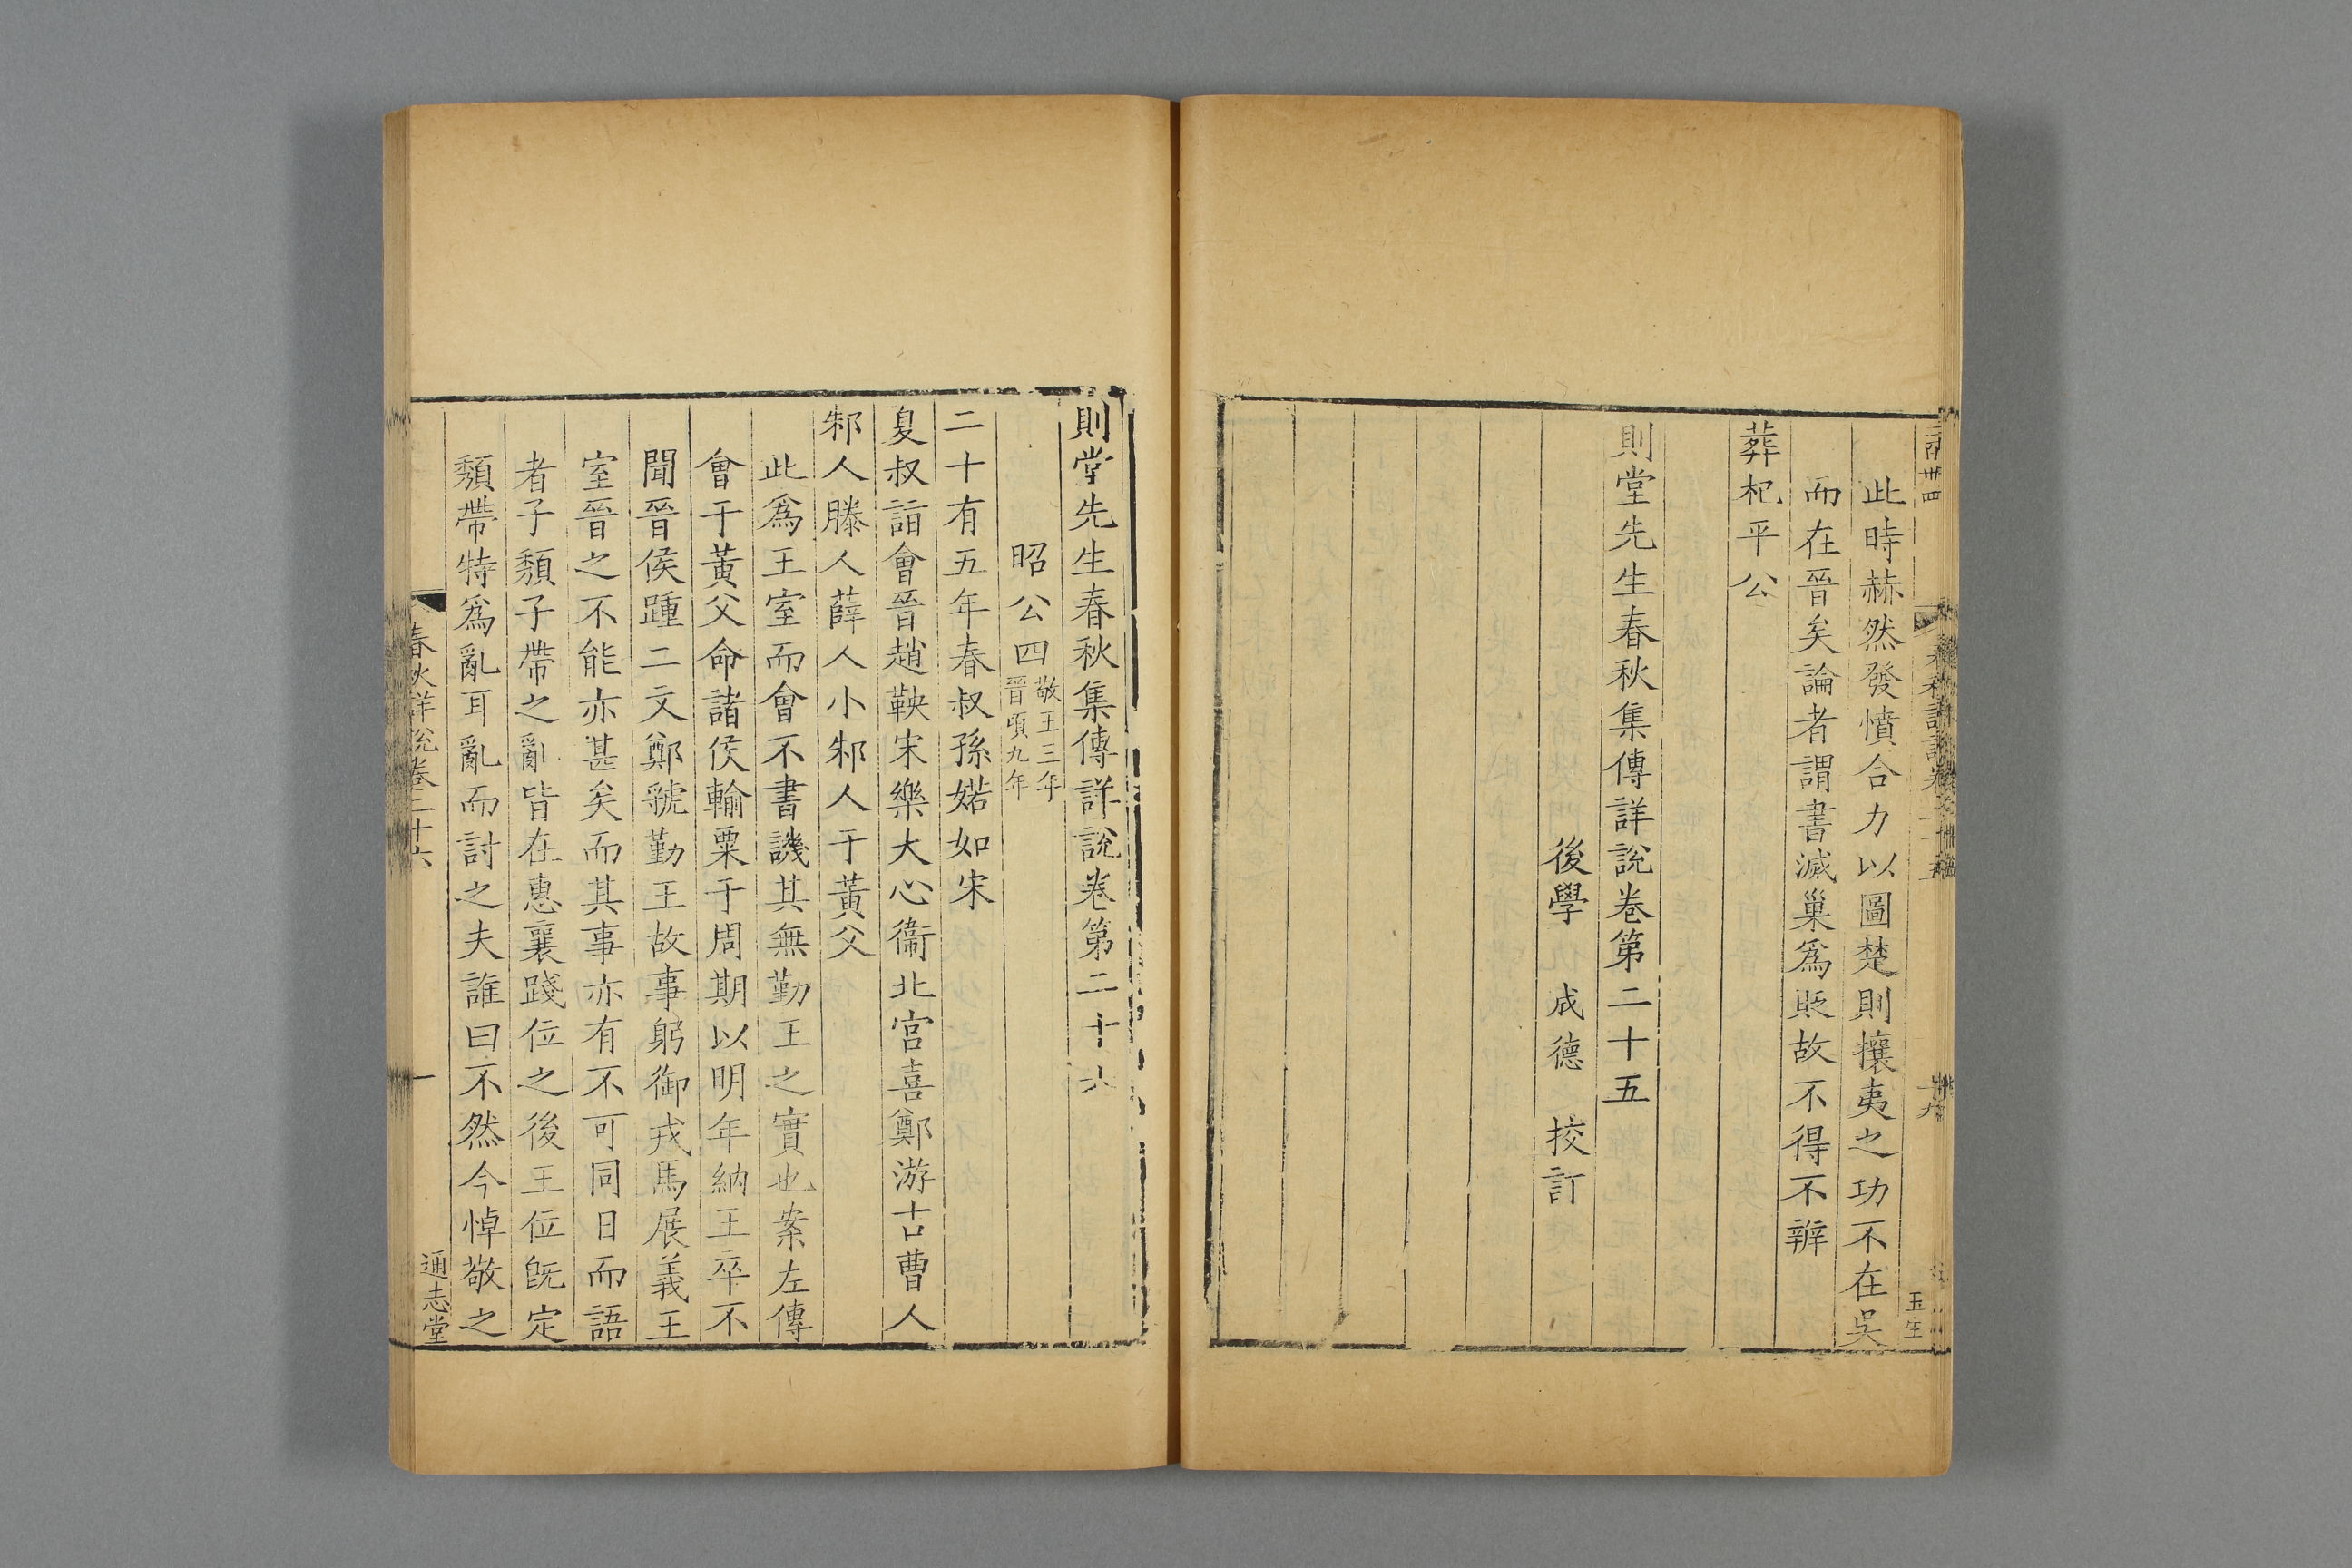 此時赫然發憤合力以圖楚則攘夷之功不在吳
而在晉矣論者謂書滅巢爲貶故不得不辨
葬杞平公
則堂先生春秋集傳詳說卷第二十五
後學 成德 挍訂
則堂先生春秋集傳詳說卷第二十六
昭公四 敬王三年 晉頃九年
二十有五年春叔孫婼如宋
夏叔詣會晉趙鞅宋樂大心衞北宮喜鄭游吉曹人
邾人滕人薛人小邾人于黃父
此爲王室而會不書譏其無勤王之實也案左傳
會于黃父命諸侯輸粟于周期以明年納王卒不
聞晉侯踵二文鄭虢勤王故事躬御戎馬展義王
室晉之不能亦甚矣而其事亦有不可同日而語
者子頹子帶之亂皆在惠襄踐位之後王位旣定
頹帶特爲亂耳亂而討之夫誰曰不然今悼敬之
春秋詳說卷二十六
一
通志堂